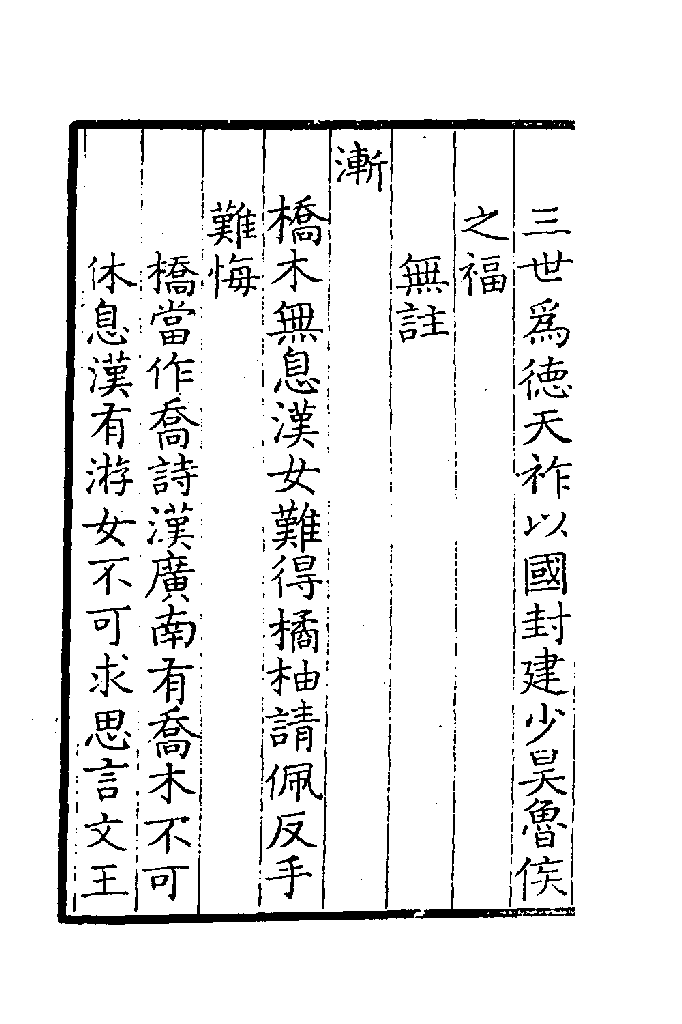 三世爲德天祚以國封建少昊魯侯
之福
無註
漸
橋木無息漢女難得橘柚請佩反手
難悔
橋當作喬詩漢廣南有喬木不可
休息漢有游女不可求思言文王